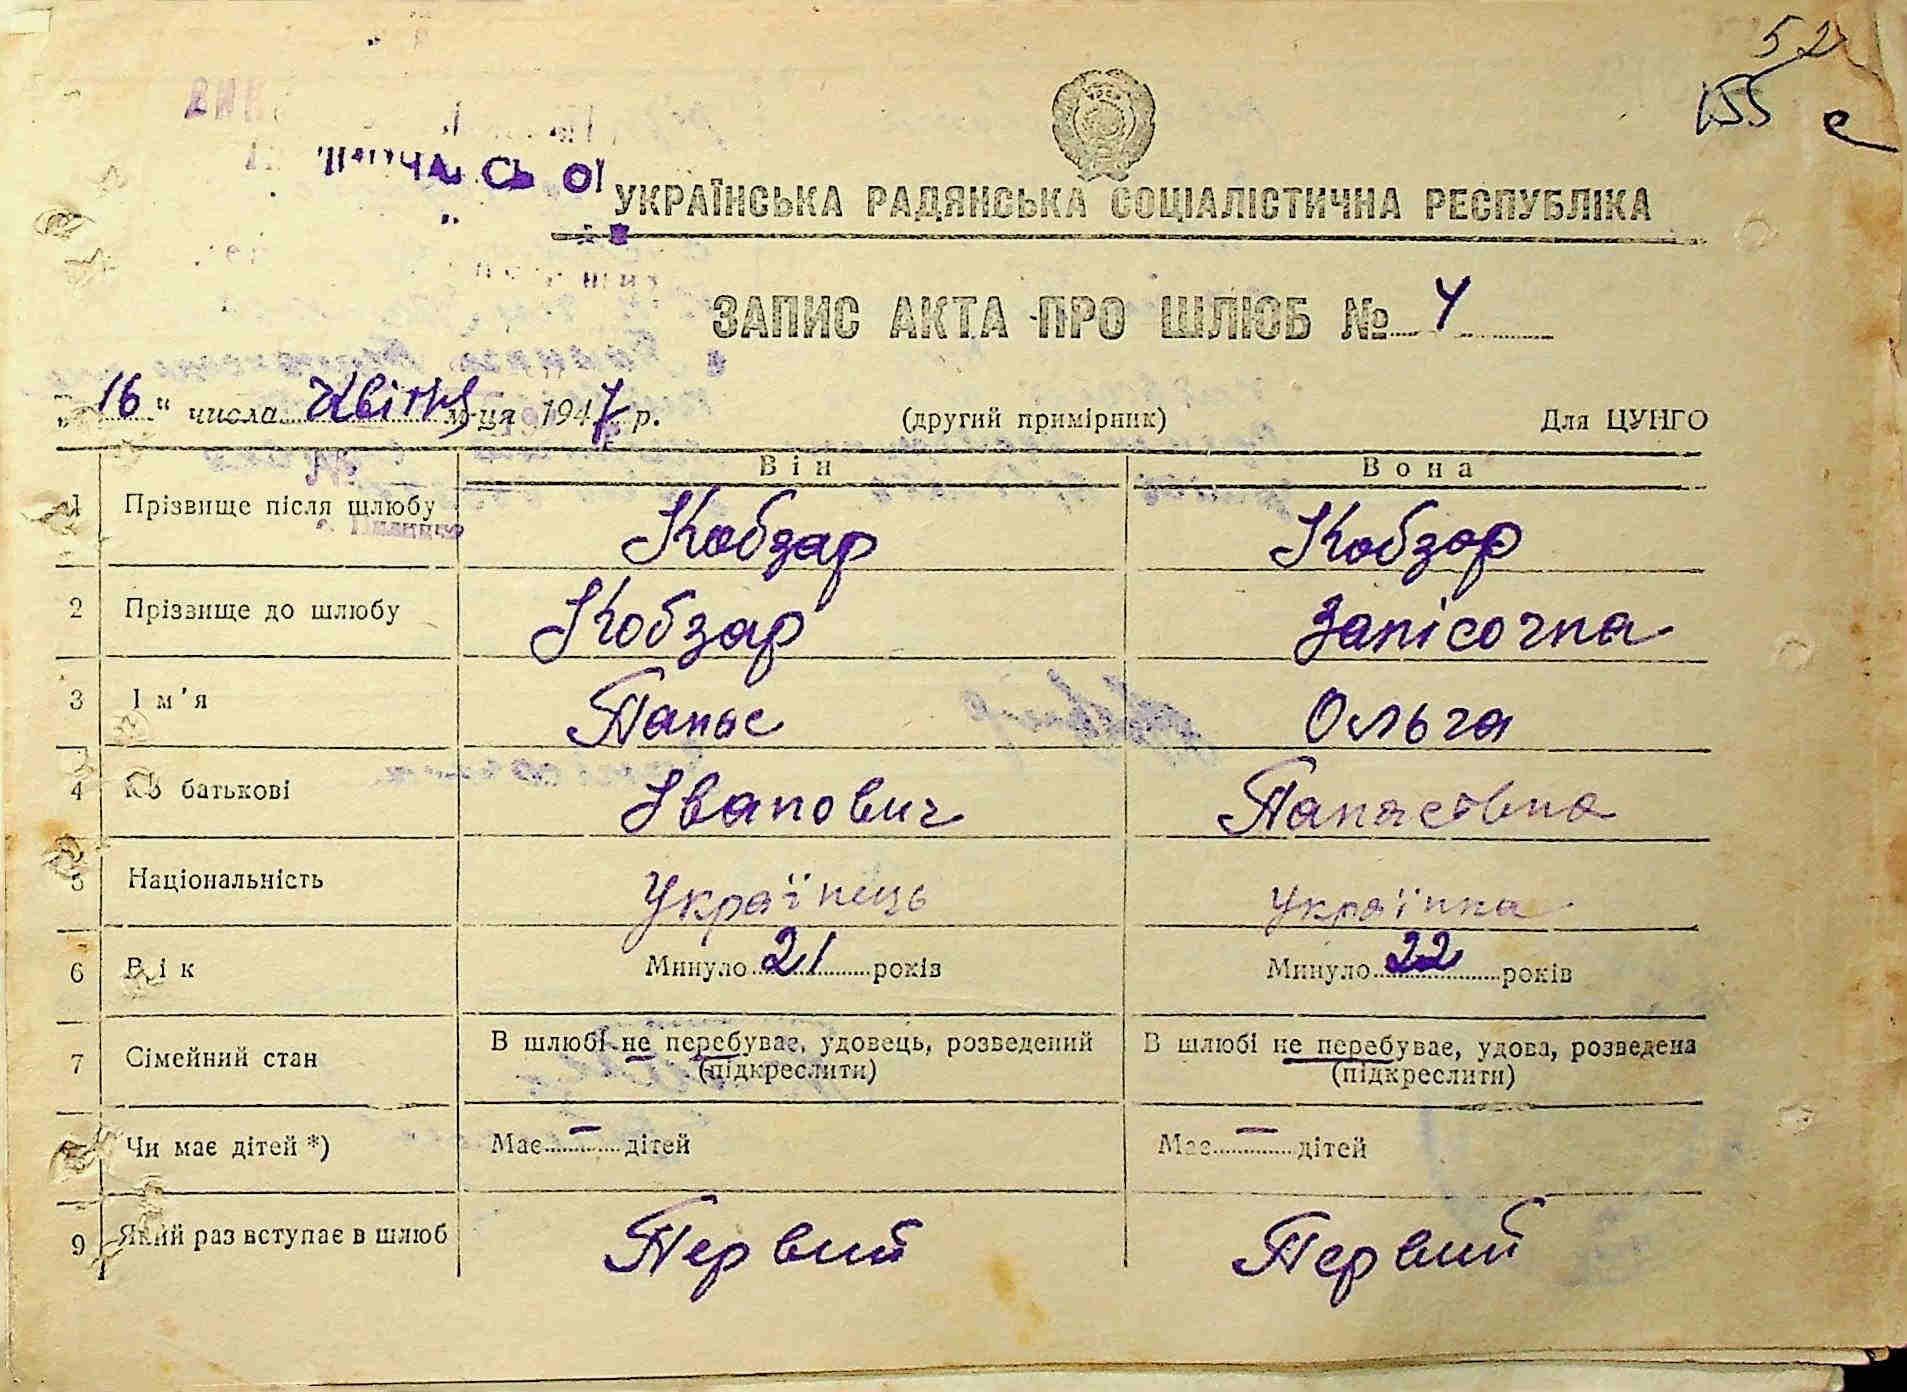 52
155 с
УКРАЇНСЬКА РАДЯНСЬКА СОЦІАЛІСТИЧНА РЕСПУБЛІКА
ЗАПИС АКТА ПРО ШЛЮБ № 4
„16“ числа Квітня м-ця 1947 р. (другий примірник) Для ЦУНГО
Він Вона
1 Прізвище після шлюбу Кобзар Кобзар
2 Прізвище до шлюбу Кобзар Запісочна
3 Ім'я Панас Ольга
4 По батькові Іванович Панасовна
5 Національність Українець Українка
6 Вік Минуло 21 років Минуло 22 років
7 Сімейний стан В шлюбі не перебуває, удовець, розведений В шлюбі не перебуває, удова, розведена
(підкреслити) (підкреслити)
Чи має дітей *) Має — дітей Має — дітей
9 Який раз вступає в шлюб Первий Первий